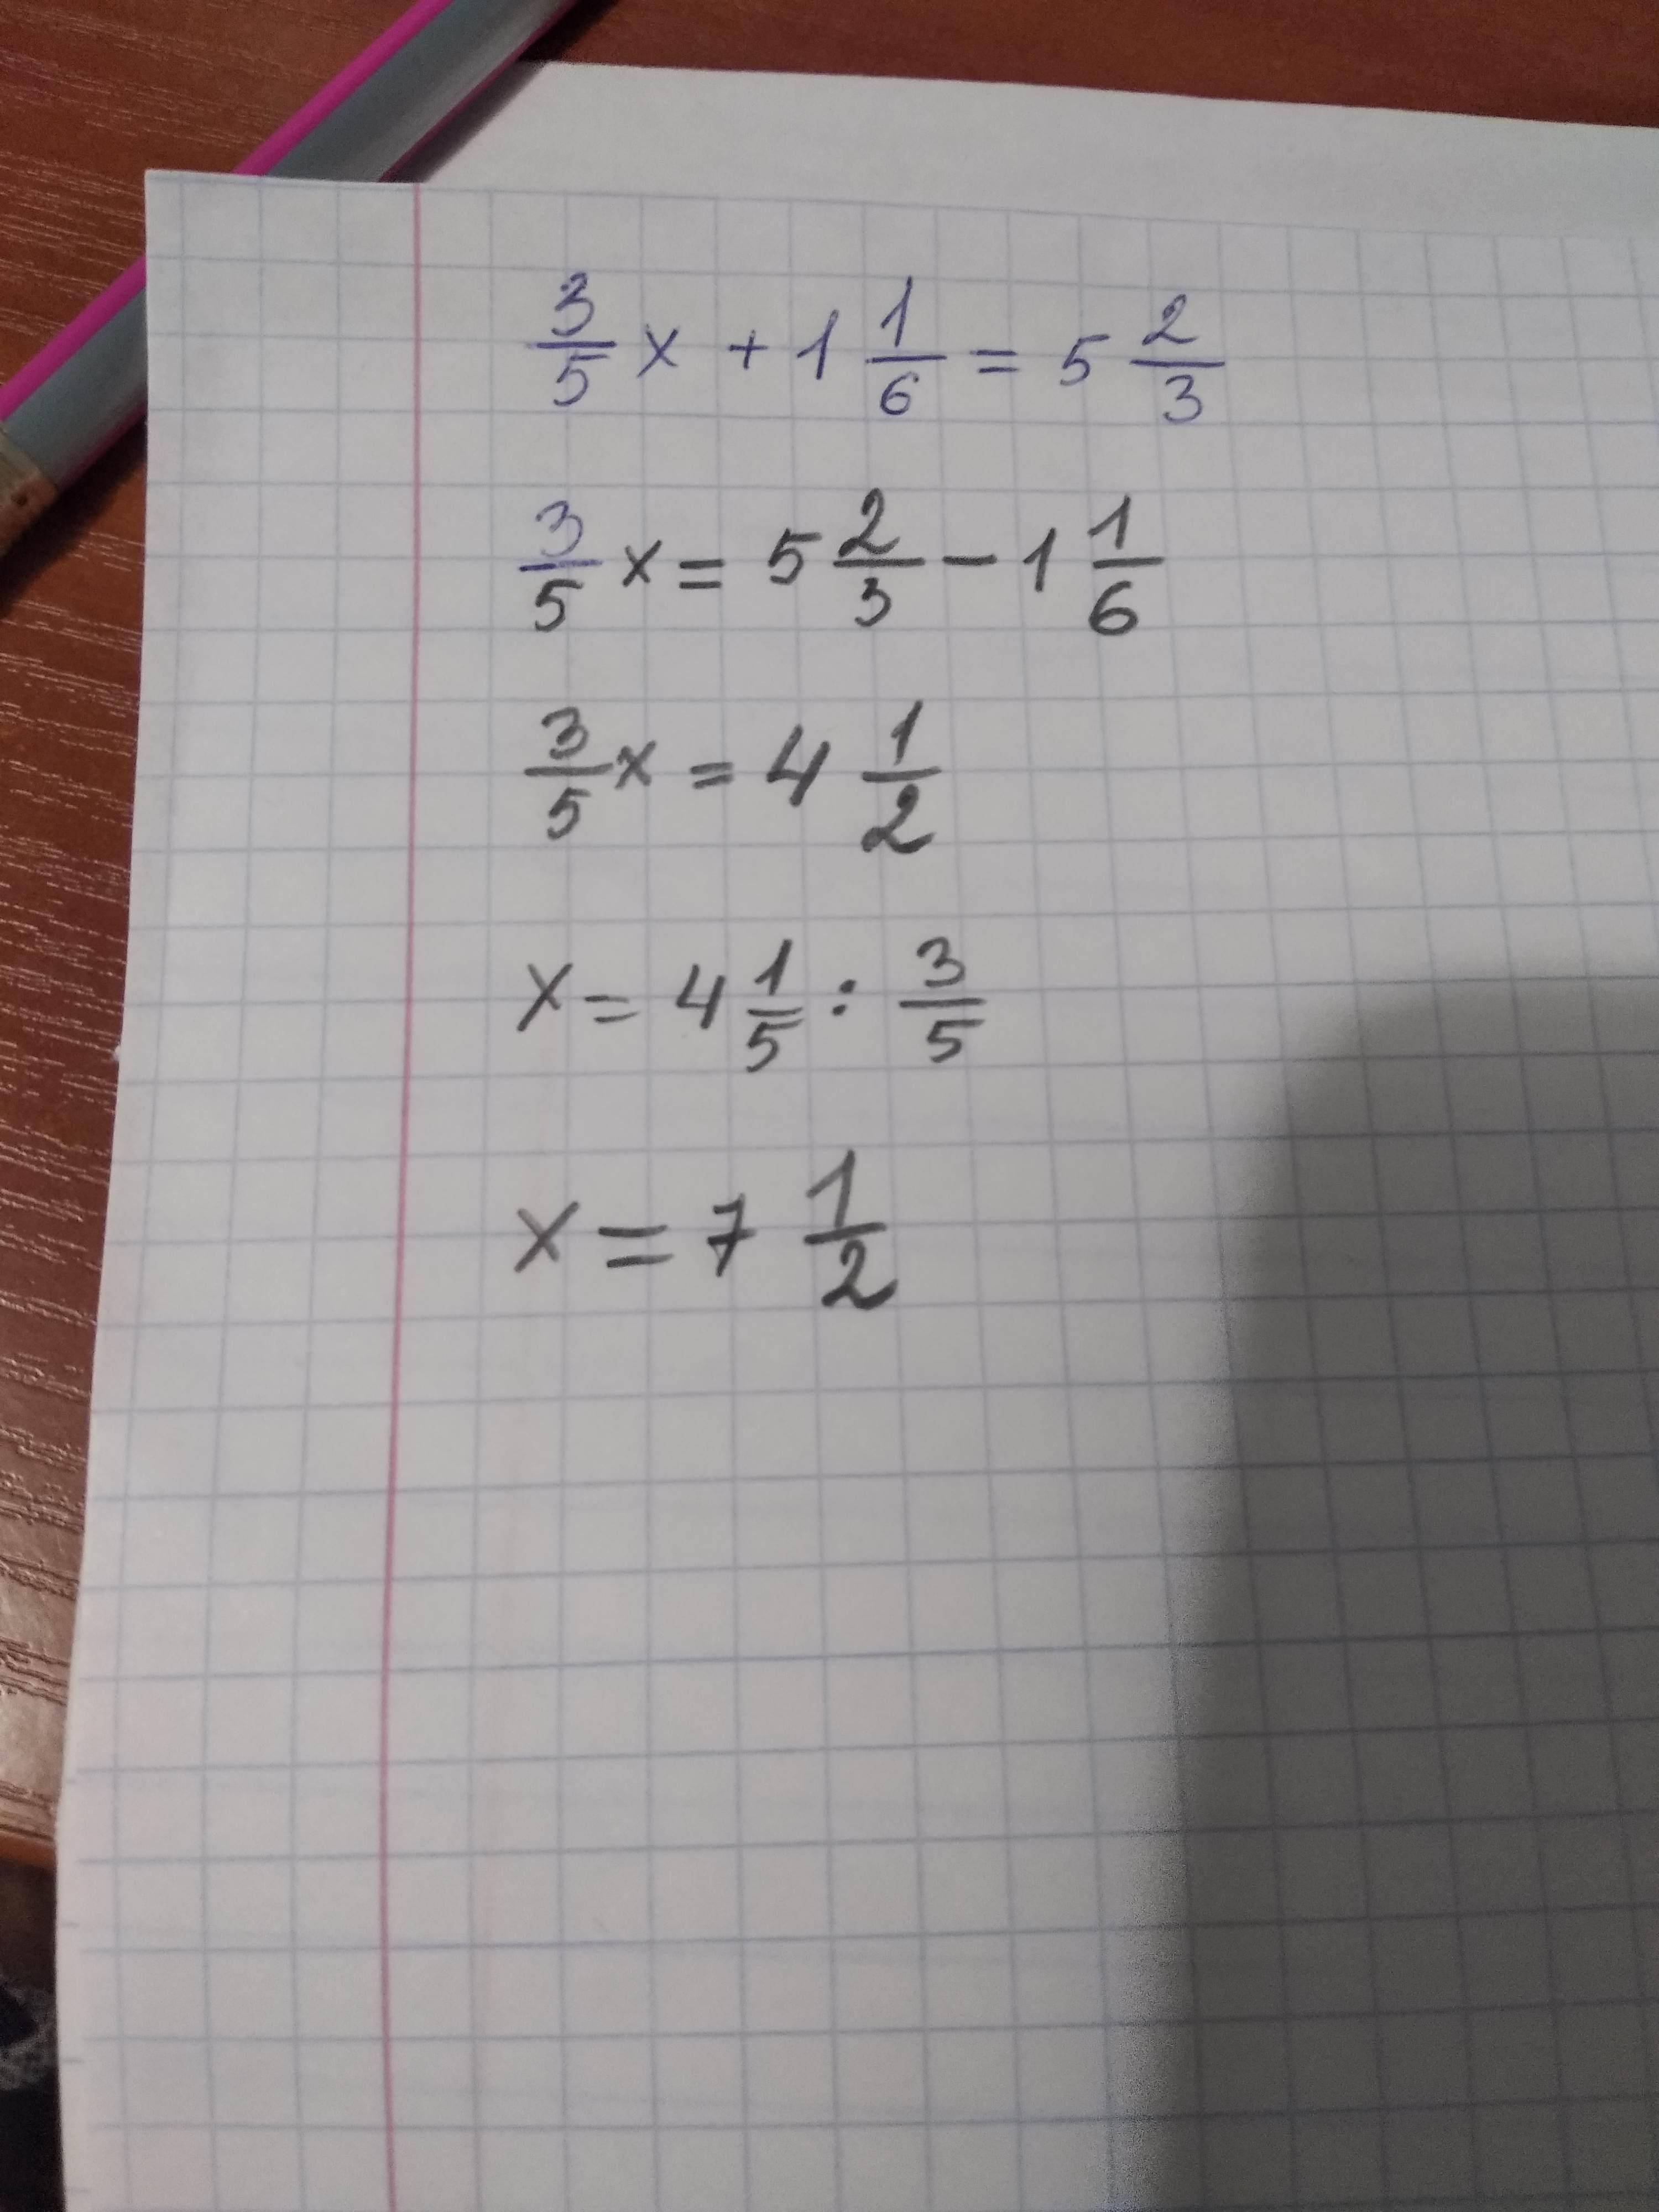 3/5 x + 1 1/6 = 5 2/3
3/5 x = 5 2/3 - 1 1/6
3/5 x = 4 1/2
x = 4 1/5 : 3/5
x = 7 1/2